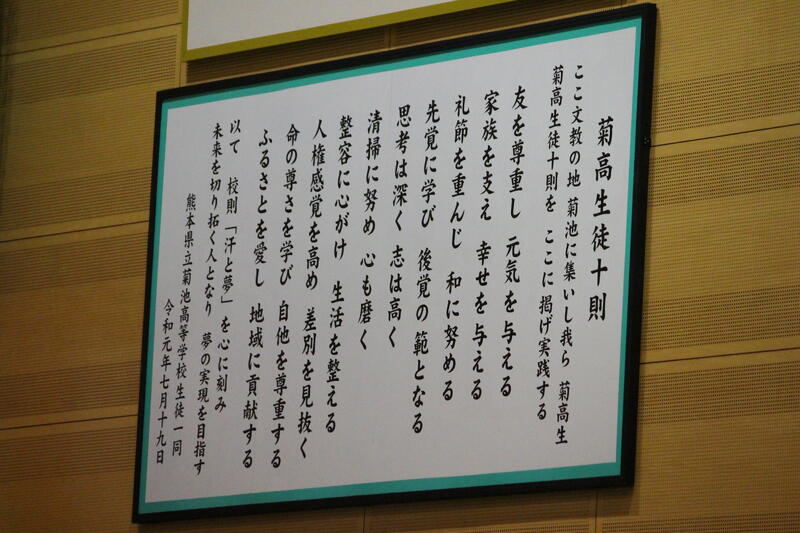 菊高生徒十則
ここ文教の地 菊池に集いし我ら 菊高生
菊高生徒十則を ここに掲げ実践する
友を尊重し 元気を与える
家族を支え 幸せを与える
礼節を重んじ 和に努める
先覚に学び 後覚の範となる
思考は深く 志は高く
清掃に努め 心も磨く
整容に心がけ 生活を整える
人権感覚を高め 差別を見抜く
命の尊さを学び 自他を尊重する
ふるさとを愛し 地域に貢献する
以て 校則「汗と夢」を心に刻み
未来を切り拓く人となり 夢の実現を目指す
熊本県立菊池高等学校生徒一同
令和元年七月十九日